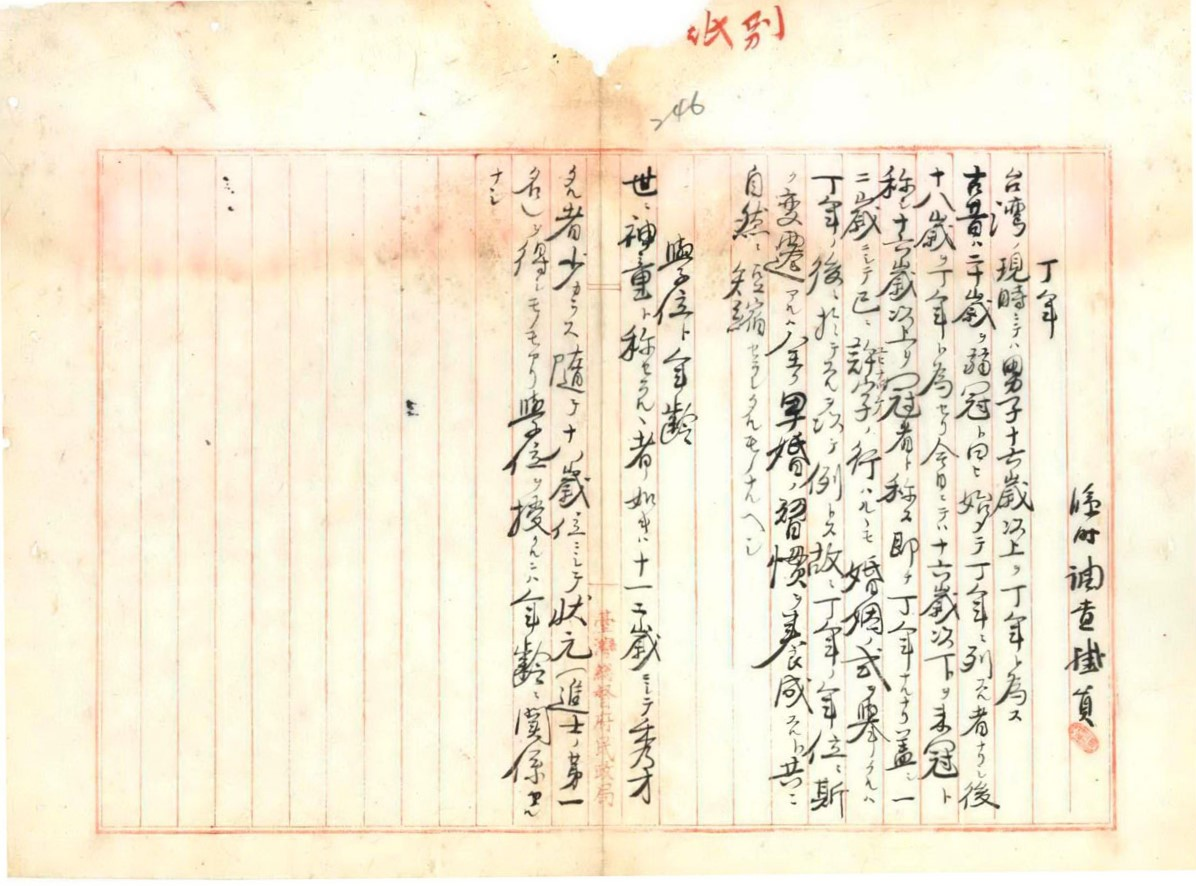 別紙
246
臨時調査掛員
丁年
台湾ノ現時ニテハ男子十六歳以上ヲ丁年ト為ス
古昔ハ二十歳ヲ弱冠ト曰ヒ始メテ丁年ニ列スル者ナリシ後
十八歳ヲ丁年ト為セリ今日ニテハ十六歳以下ヲ未冠ト
称シ十六歳以上ヲ冠者ト称ス即チ丁年ナルナリ蓋シ一
二歳ニシテ已ニ許字ノ行ハルヽモ婚姻ノ式ヲ挙クルハ
丁年ノ後ニ於テスル以テ例トス故ニ丁年ノ年位ニ斯
ク変遷アルハ全ク早婚ノ習慣ヲ養成スルト共ニ
自然ニ短縮セラレタルモノナルヘシ
学位ト年齢
世ニ神童ト称セラルヽ者ノ如キハ十一二歳ニシテ秀才
タル者少カラス随テ十八歳位ニシテ状元(進士ノ第一
名)ヲ得シモノモアリ学位ヲ授クルニハ年齢ニ関係スル
ナシ
臺灣總督府民政局